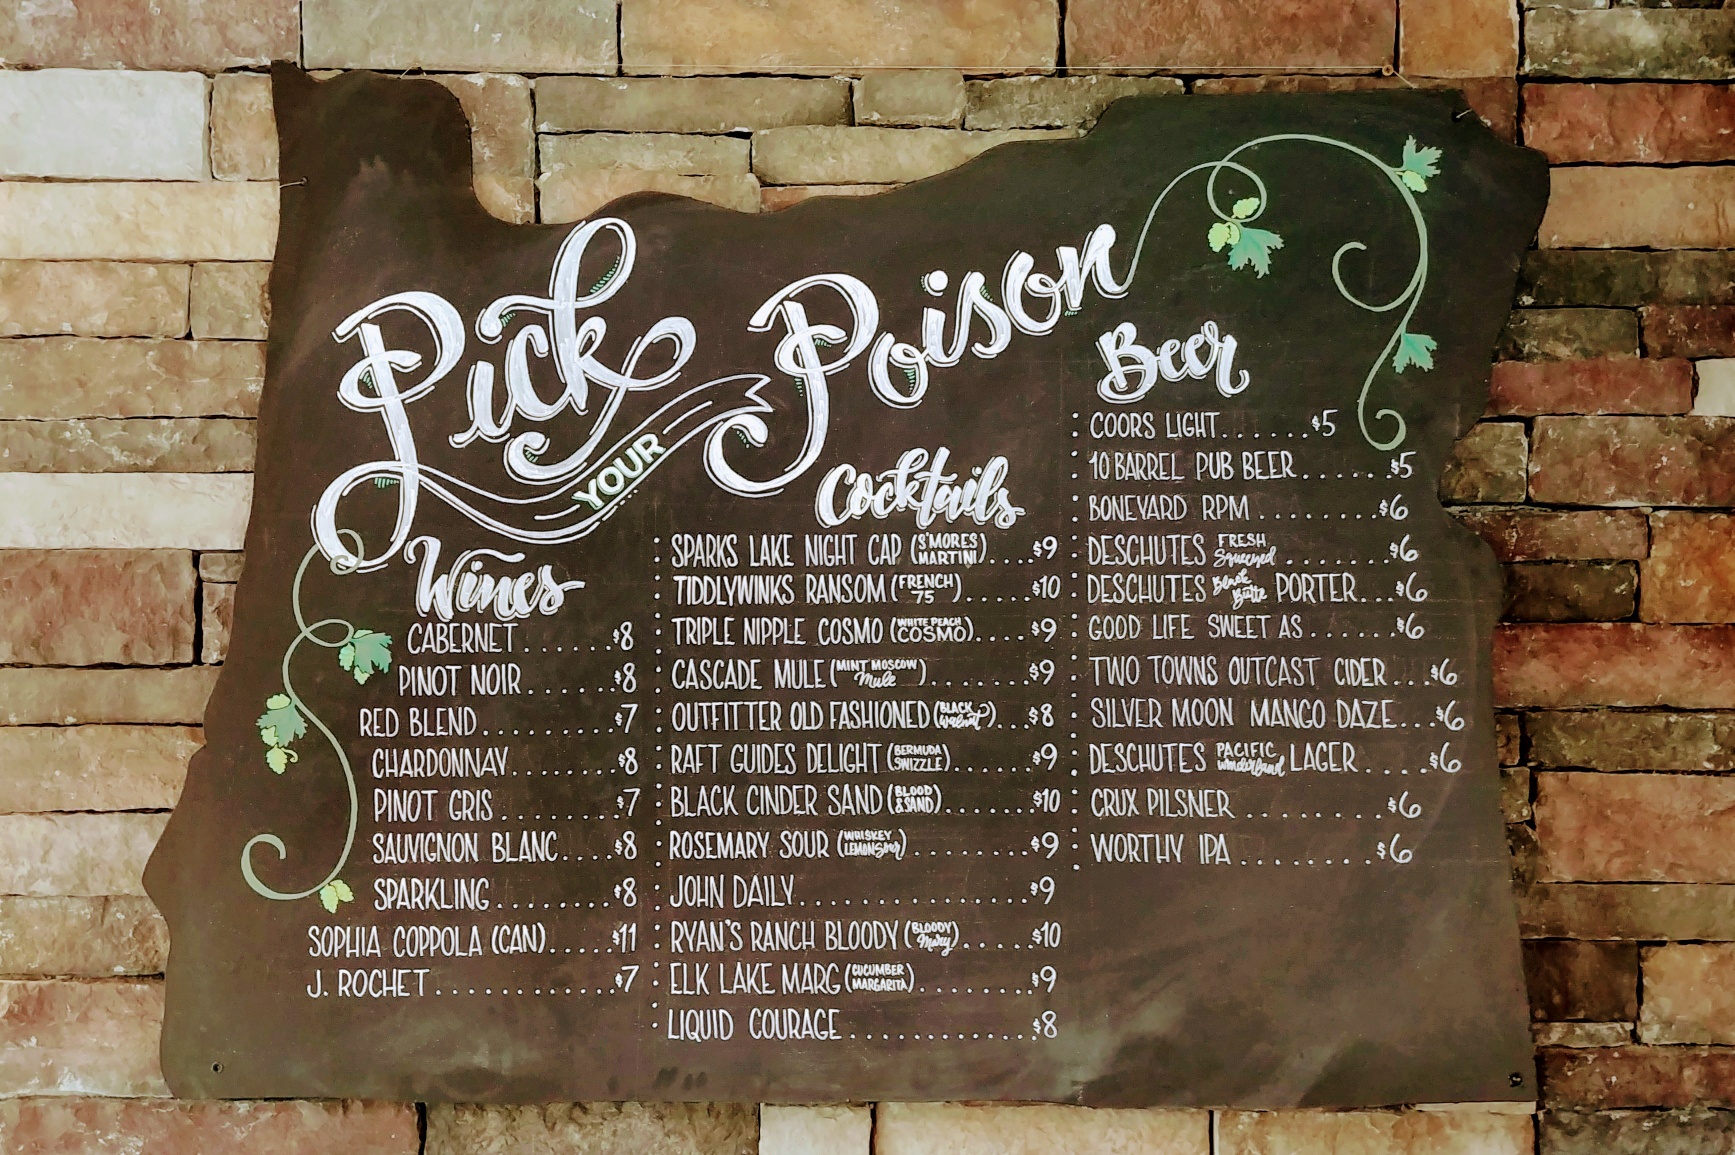 Pick
YOUR
Poison
Wines
CABERNET......$8
PINOT NOIR......$8
RED BLEND.........$7
CHARDONNAY.......$8
PINOT GRIS.........$7
SAUVIGNON BLANC....$8
SPARKLING........$8
SOPHIA COPPOLA (CAN).....$11
J. ROCHET.............$7
Cocktails
SPARKS LAKE NIGHT CAP (S'MORES MARTINI)....$9
TIDDLYWINKS RANSOM (FRENCH 75).....$10
TRIPLE NIPPLE COSMO (WHITE PEACH COSMO)....$9
CASCADE MULE (MINT MOSCOW Mule)........$9
OUTFITTER OLD FASHIONED (BLACK Walnut)...$8
RAFT GUIDES DELIGHT (BERMUDA SWIZZLE).......$9
BLACK CINDER SAND (BLOOD & SAND)........$10
ROSEMARY SOUR (WHISKEY LEMON Sour)..........$9
JOHN DAILY..............$9
RYAN'S RANCH BLOODY (BLOODY Mary).....$10
ELK LAKE MARG (CUCUMBER MARGARITA)........$9
LIQUID COURAGE............$8
Beer
COORS LIGHT......$5
10 BARREL PUB BEER......$5
BONEYARD RPM........$6
DESCHUTES FRESH Squeezed........$6
DESCHUTES Black Butte PORTER...$6
GOOD LIFE SWEET AS......$6
TWO TOWNS OUTCAST CIDER...$6
SILVER MOON MANGO DAZE...$6
DESCHUTES PACIFIC Wonderland LAGER....$6
CRUX PILSNER.........$6
WORTHY IPA.........$6